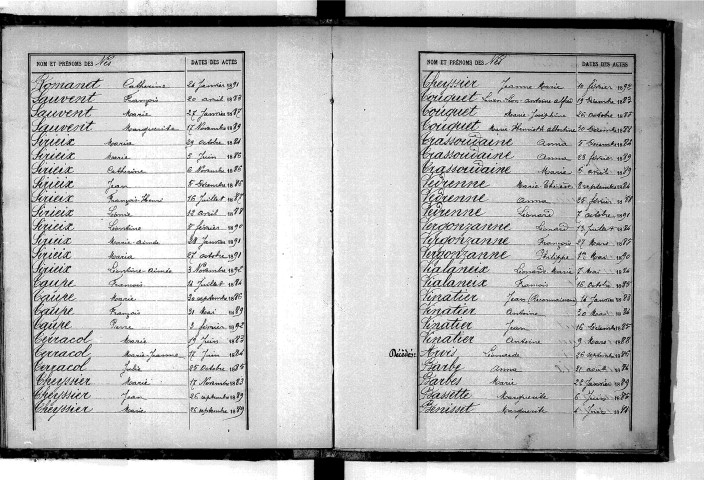 NOM ET PRÉNOMS DES Nés DATES DES ACTES
Romanet Catherine 24 Janvier 1891
Sauvent François 20 avril 1883
Sauvent Marie 27 Janvier 1887
Sauvent Marguerite 17 Novembre 1889
Sirieix Maria 29 octobre 1884
Sirieix Marie 5 Juin 1886
Sirieix Catherine 6 Novembre 1886
Sirieix Jean 8 Décembre 1886
Sirieix François Henri 16 Juillet 1887
Sirieix Léonie 12 avril 1888
Sirieix Léontine 8 février 1890
Sirieix Marie Aimée 28 Janvier 1891
Sirieix Maria 27 octobre 1891
Sirieix Léontine Aimée 3 Novembre 1892
Taupe François 4 Juillet 1884
Taupe Marie 20 septembre 1886
Taupe François 31 Mai 1889
Taupe Pierre 2 février 1892
Terracol Marie 19 Juin 1883
Terracol Marie Jeanne 17 Juin 1884
Terracol Julie 25 octobre 1885
Theyssier Marie 17 Novembre 1883
Theyssier Jean 25 septembre 1889
Theyssier Marie 25 septembre 1889
NOM ET PRÉNOMS DES Nés DATES DES ACTES
Theyssier Jeanne Marie 10 février 1892
Touquet Antoine 19 Décembre 1883
Touquet Marie Joséphine 26 octobre 1885
Touquet Marie Henriette Albertine 30 Décembre 1888
Trassoudaine Anna 5 Décembre 1884
Trassoudaine Anna 23 février 1889
Trassoudaine Marie 5 avril 1889
Vedrenne Marie Thérèse 8 septembre 1884
Vedrenne Anna 25 février 1888
Vedrenne Léonard 7 octobre 1891
Vergonzanne Léonard 13 Juillet 1884
Vergonzanne François 27 Mars 1885
Vergonzanne Philippe 12 Mai 1890
Vialaneix Léonard Marie 7 Mai 1884
Vialaneix François 16 octobre 1885
Vinatier Jean (Reconnaissance) 14 Janvier 1883
Vinatier Antoine 30 Mai 1884
Vinatier Jean 16 Décembre 1885
Vinatier Antoine 9 Mars 1888
Décédés: Arvis Léonarde 26 septembre 1885
Barbe Anna 21 avril 1886
Barbes Marie 22 Janvier 1889
Bassette Marguerite 6 Juin 1885
Benisset Marguerite 4 Juin 1884